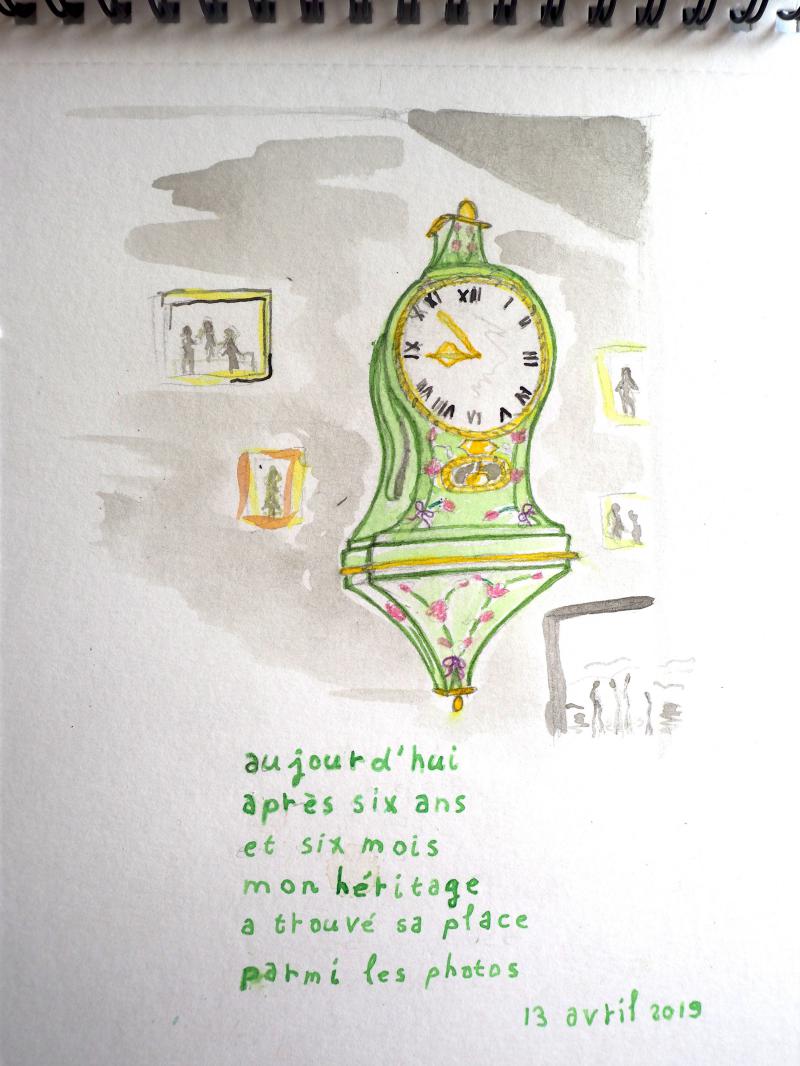 XII
I
II
III
IV
V
VI
VII
VIII
IX
X
XI
aujourd'hui
après six ans
et six mois
mon héritage
a trouvé sa place
parmi les photos
13 avril 2019